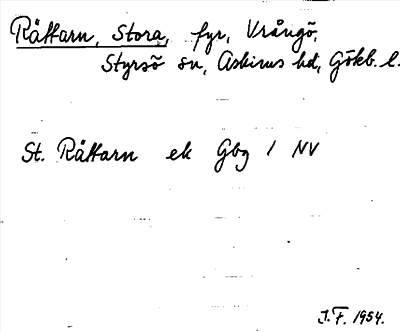 Rättarn, Stora, fyr, Vrångö,
Styrsö sn, Askims hd, Göteb. l.
St. Rättarn ek Gbg 1 NV
J.F. 1954.